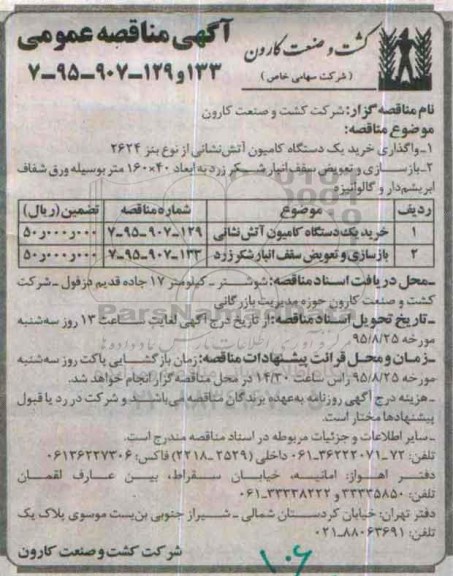 کشت و صنعت کارون
( شرکت سهامی خاص )
آگهی مناقصه عمومی
۷-۹۵-۹۰۷-۱۲۹ و ۱۳۳
نام مناقصه گزار: شرکت کشت و صنعت کارون
موضوع مناقصه:
۱-واگذاری خرید یک دستگاه کامیون آتش‌نشانی از نوع بنز ۲۶۲۴
۲-بازسازی و تعویض سقف انبار شکر زرد به ابعاد ۴۰×۱۶۰ متر بوسیله ورق شفاف
ابریشم‌دار و گالوانیزه
ردیف موضوع شماره مناقصه تضمین (ریال)
۱ خرید یک دستگاه کامیون آتش نشانی ۷-۹۵-۹۰۷-۱۲۹ ۵۰٫۰۰۰٫۰۰۰
۲ بازسازی و تعویض سقف انبار شکر زرد ۷-۹۵-۹۰۷-۱۳۳ ۵۰٫۰۰۰٫۰۰۰
-محل دریافت اسناد مناقصه: شوشتر - کیلومتر ۱۷ جاده قدیم دزفول - شرکت
کشت و صنعت کارون حوزه مدیریت بازرگانی
-تاریخ تحویل اسناد مناقصه: از تاریخ درج آگهی لغایت ساعت ۱۳ روز سه‌شنبه
مورخه ۹۵/۸/۲۵
-زمان و محل قرائت پیشنهادات مناقصه: زمان بازگشایی پاکت روز سه‌شنبه
مورخه ۹۵/۸/۲۵ راس ساعت ۱۴/۳۰ در محل مناقصه گزار انجام خواهد شد.
-هزینه درج آگهی روزنامه به‌عهده برندگان مناقصه می‌باشند و شرکت در رد یا قبول
پیشنهادها مختار است.
-سایر اطلاعات و جزئیات مربوطه در اسناد مناقصه مندرج است.
تلفن: ۷۲-۳۶۲۲۲۰۷۱-۰۶۱ داخلی (۲۵۲۹-۲۲۱۸) فاکس: ۰۶۱۳۶۲۲۷۳۰۶
دفتر اهواز: امانیه، خیابان سقراط، بین عارف لقمان
تلفن: ۳۳۳۳۵۸۵۰ و ۳۳۳۳۸۲۲۲-۰۶۱
دفتر تهران: خیابان کردستان شمالی - شیراز جنوبی بن‌بست موسوی پلاک یک
تلفن: ۸۸۰۶۳۶۹۱-۰۲۱
شرکت کشت و صنعت کارون
۱۰۶